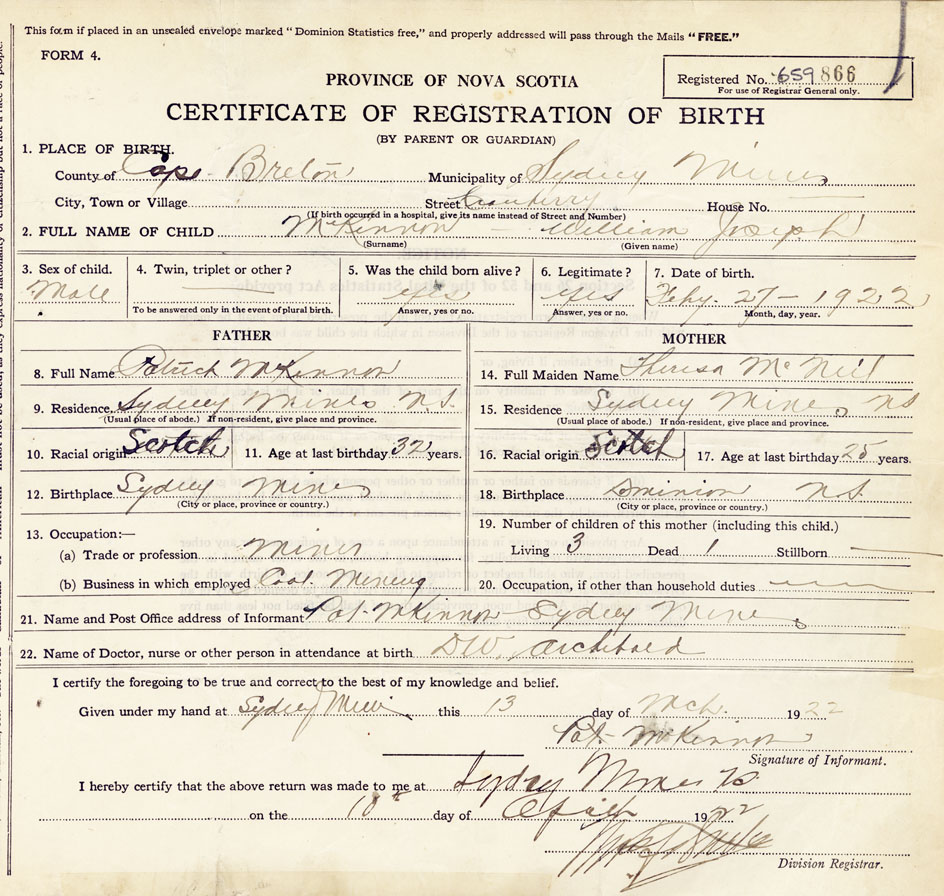 This form if placed in an unsealed envelope marked "Dominion Statistics free," and properly addressed will pass through the Mails "FREE."
FORM 4.
Registered No. 659 866
For use of Registrar General only.
PROVINCE OF NOVA SCOTIA
CERTIFICATE OF REGISTRATION OF BIRTH
(BY PARENT OR GUARDIAN)
1. PLACE OF BIRTH.
County of Cape Breton Municipality of Sydney Mines
City, Town or Village Street Cranberry House No.
(If birth occurred in a hospital, give its name instead of Street and Number)
2. FULL NAME OF CHILD McKinnon - William Joseph
(Surname) (Given name)
3. Sex of child. 4. Twin, triplet or other? 5. Was the child born alive? 6. Legitimate? 7. Date of birth.
Male yes yes Feby. 27 - 1922
To be answered only in the event of plural birth. Answer, yes or no. Answer, yes or no. Month, day, year.
FATHER MOTHER
8. Full Name Patrick McKinnon 14. Full Maiden Name Theresa McNeil
9. Residence. Sydney Mines N.S. 15. Residence Sydney Mines NS
(Usual place of abode.) If non-resident, give place and province. (Usual place of abode.) If non-resident, give place and province.
10. Racial origin Scotch 11. Age at last birthday 32 years. 16. Racial origin Scotch 17. Age at last birthday 25 years.
12. Birthplace Sydney Mines 18. Birthplace Dominion N.S.
(City or place, province or country.) (City or place, province or country.)
13. Occupation:— 19. Number of children of this mother (including this child.)
(a) Trade or profession Miner Living 3 Dead 1 Stillborn
(b) Business in which employed Coal Mining 20. Occupation, if other than household duties
21. Name and Post Office address of Informant Pat. McKinnon Sydney Mines
22. Name of Doctor, nurse or other person in attendance at birth DW. Archibald
I certify the foregoing to be true and correct to the best of my knowledge and belief.
Given under my hand at Sydney Mines this 13 day of Mch. 1922
Pat. McKinnon
Signature of Informant.
I hereby certify that the above return was made to me at Sydney Mines
on the 10th day of April 1922
Division Registrar.